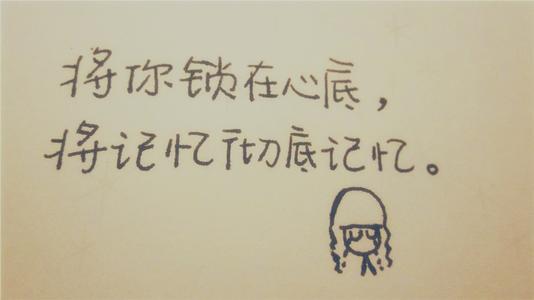 将你锁在心底，
将记忆彻底记忆。